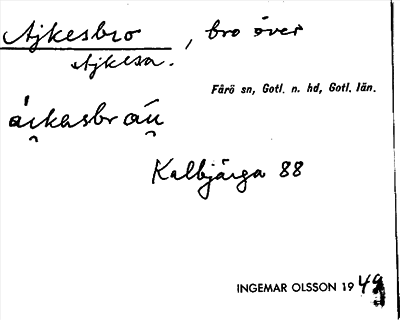 Ajkesbro, bro över
Ajkesa.
Fårö sn, Gotl. n. hd, Gotl. län.
áı̯kasbrau̯
Kalbjärga 88
INGEMAR OLSSON 1949